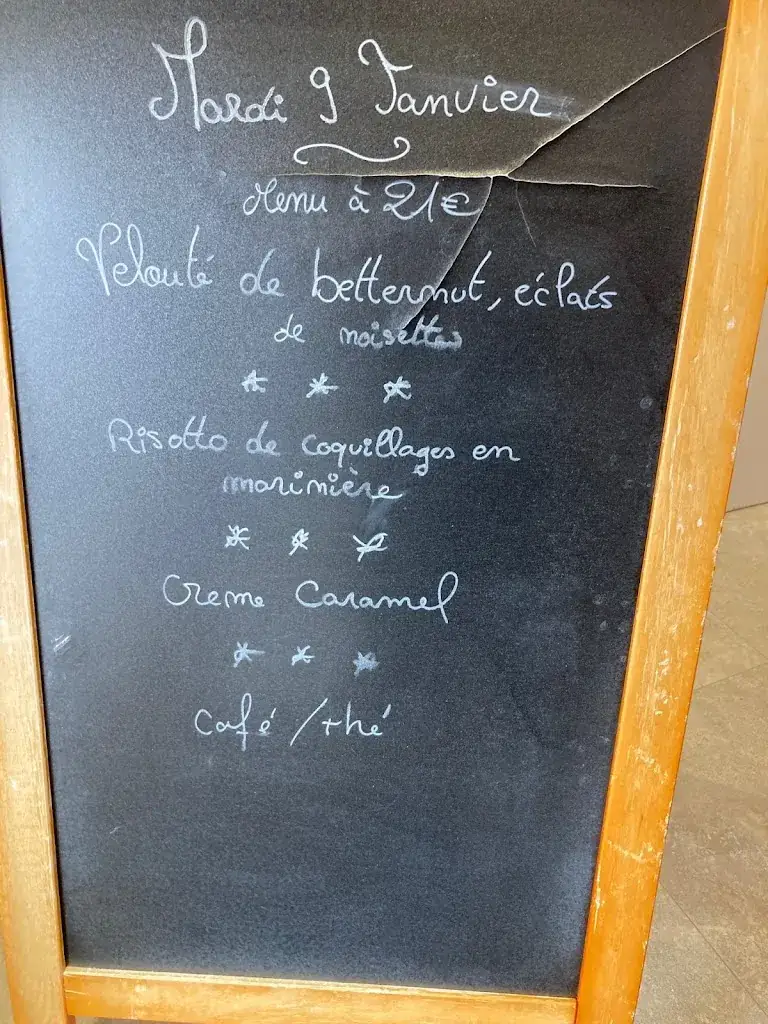 Mardi 9 Janvier
Menu à 21€
Velouté de betternut, éclats
de noisettes
* * *
Risotto de coquillages en
marinière
* * *
Creme Caramel
* * *
Café /thé